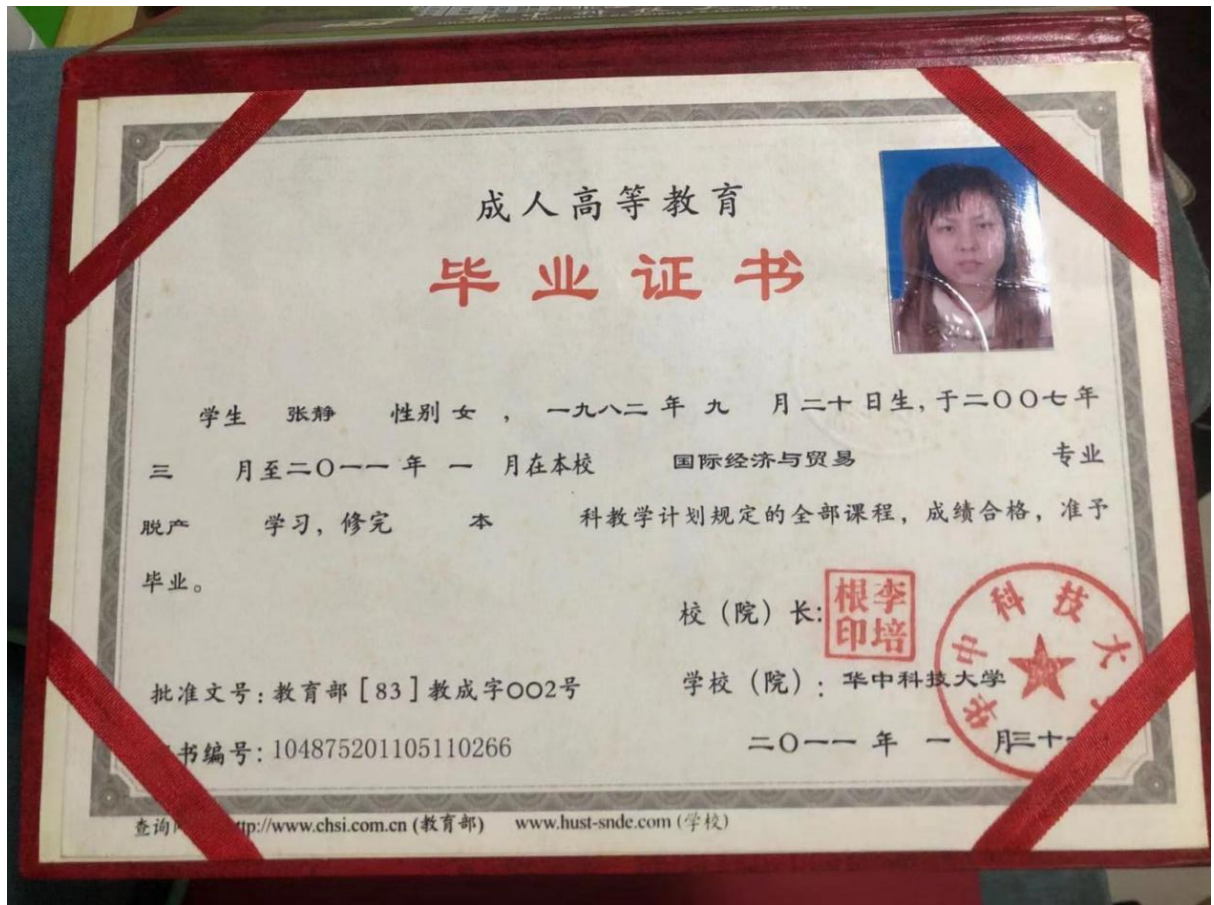 成人高等教育
毕业证书
学生 张静 性别 女 ， 一九八二 年 九 月 二十 日生，于二〇〇七年
三 月至二〇一一 年 一 月在本校 国际经济与贸易 专业
脱产 学习，修完 本 科教学计划规定的全部课程，成绩合格，准予
毕业。
校（院）长：
李培根印
批准文号：教育部［83］教成字002号
学校（院）：华中科技大学
书编号：104875201105110266
二〇一一 年 一 月三十
华中科技大
查询 ttp://www.chsi.com.cn (教育部) www.hust-snde.com (学校)